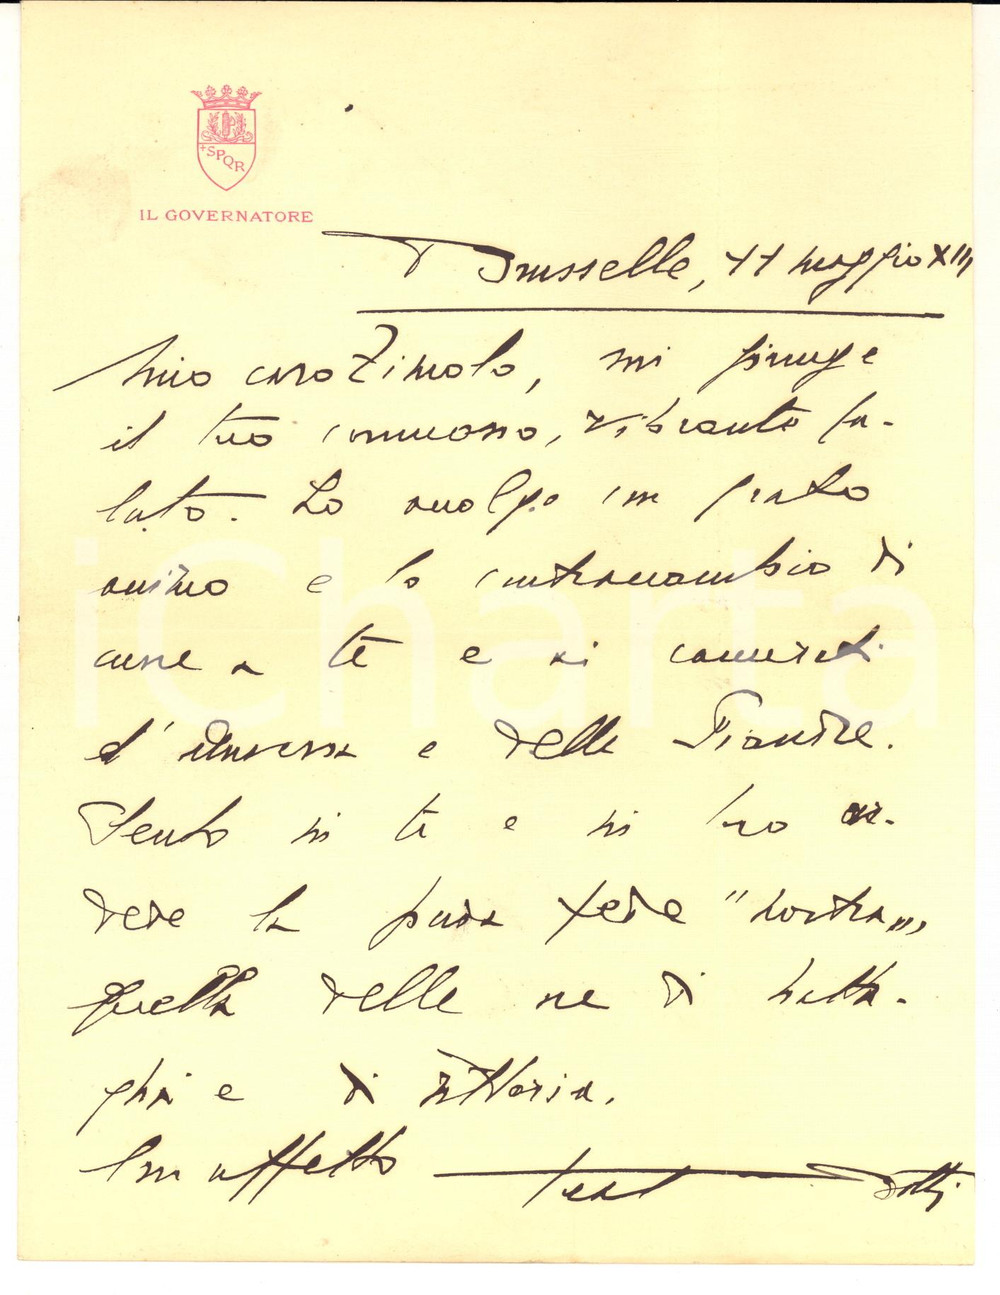 SPQR
IL GOVERNATORE
Brusselle, 11 maggio XIII
Mio caro Zimolo, mi giunge
il tuo commosso, vibrante sa-
luto. Lo accolgo con grato
animo e lo contraccambio di
cuore a te e ai camerati
d'Anversa e delle Fiandre.
Sento in te e in loro ar-
dere la pura fede "nostra",
quella delle ore di batta-
glia e di vittoria.
Con affetto
iCharta